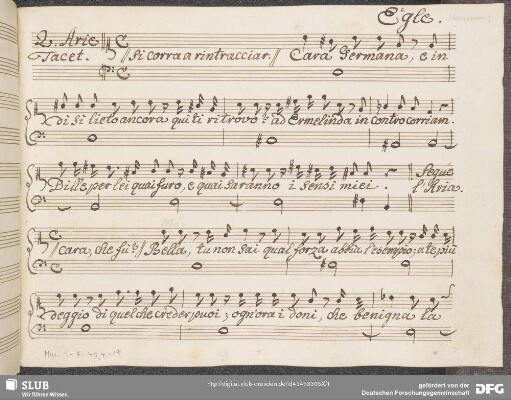 Egle.
2. Arie
Tacet.
// Si corra a rintracciar. // Cara Germana, e in
di sì lieto ancora qui ti ritrovo? ad Ermelinda in contro corriam.
Dille, per lei quai furo, e quai saranno i sensi miei.
Segue
l'Aria.
// Cara, che fù? // Bella, tu non sai qual forza abbia l'esempio; a te, più
deggio di quel che creder puoi; ognora i doni, che benigna la
SLUB
Wir führen Wissen.
gefördert von der
Deutschen Forschungsgemeinschaft
DFG